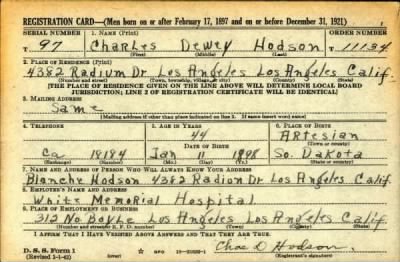 REGISTRATION CARD—(Men born on or after February 17, 1897 and on or before December 31, 1921)
SERIAL NUMBER 1. NAME (Print) ORDER NUMBER
T 97 Charles Dewey Hodson 11134
(First) (Middle) (Last)
2. PLACE OF RESIDENCE (Print)
4382 Radium Dr Los Angeles Los Angeles Calif.
(Number and street) (Town, township, village, or city) (County) (State)
[THE PLACE OF RESIDENCE GIVEN ON THE LINE ABOVE WILL DETERMINE LOCAL BOARD
JURISDICTION; LINE 2 OF REGISTRATION CERTIFICATE WILL BE IDENTICAL]
3. MAILING ADDRESS
Same
[Mailing address if other than place indicated on line 2. If same insert word same]
4. TELEPHONE 5. AGE IN YEARS 6. PLACE OF BIRTH
44 Artesian
DATE OF BIRTH (Town or county)
Ca 18184 Jan 11 1898 So. Dakota
(Exchange) (Number) (Mo.) (Day) (Yr.) (State or country)
7. NAME AND ADDRESS OF PERSON WHO WILL ALWAYS KNOW YOUR ADDRESS
Blanche Hodson 4382 Radion Dr Los Angeles Calif.
8. EMPLOYER'S NAME AND ADDRESS
White Memorial Hospital
9. PLACE OF EMPLOYMENT OR BUSINESS
312 No Boyle Los Angeles Los Angeles Calif
(Number and street or R. F. D. number) (Town) (County) (State)
I AFFIRM THAT I HAVE VERIFIED ABOVE ANSWERS AND THAT THEY ARE TRUE.
D. S. S. Form 1
(Revised 1-1-42) (over) GPO Chas D Hodson
(Registrant's signature)